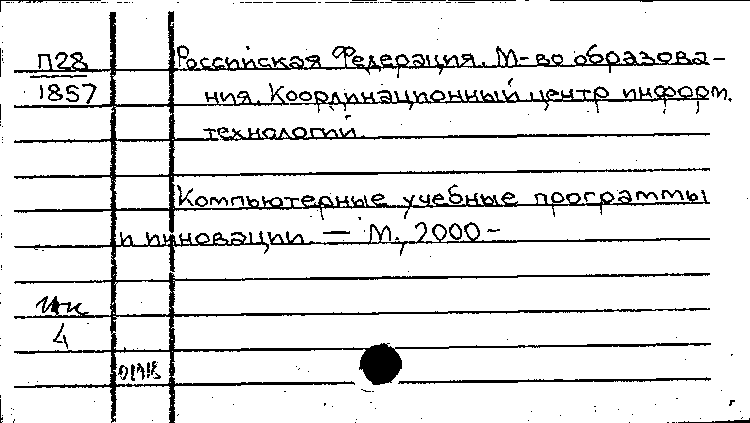 П28
1857
Российская Федерация. М-во образова-
ния. Координационный центр информ.
технологий.
Компьютерные учебные программы
и инновации. — М., 2000-
4